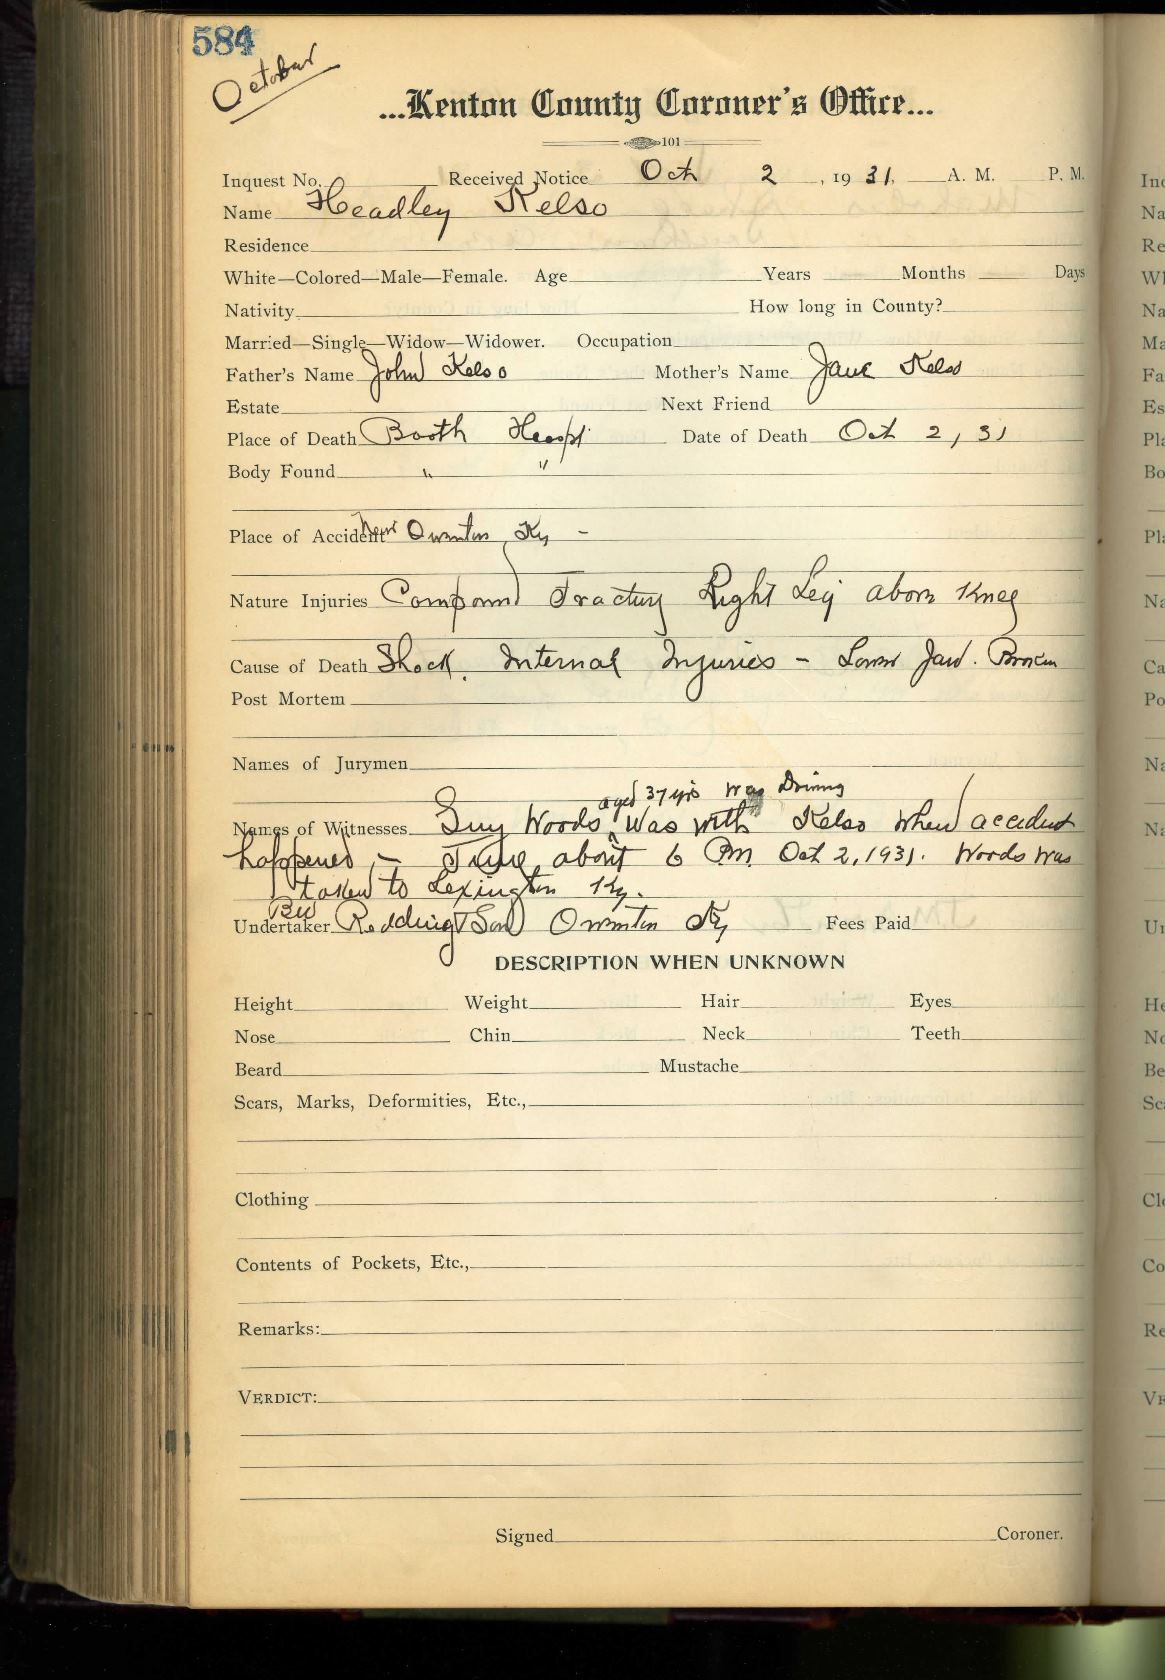 584
October
...Kenton County Coroner's Office...
101
Inquest No. Received Notice Oct 2, 1931, A. M. P. M.
Name Headley Kelso
Residence
White—Colored—Male—Female. Age Years Months Days
Nativity How long in County?
Married—Single—Widow—Widower. Occupation
Father's Name John Kelso Mother's Name Jane Kelso
Estate Next Friend
Place of Death Booth Hospt Date of Death Oct 2, 31
Body Found " "
Place of Accident Near Owenton, Ky -
Nature Injuries Compound Fracture Right Leg above Knee
Cause of Death Shock. Internal Injuries - Lower Jaw. Broken
Post Mortem
Names of Jurymen
aged 37 yrs was Driving
Names of Witnesses Guy Woods, was with Kelso when accident
happened - Time about 6 PM Oct 2, 1931. Woods was
taken to Lexington Ky.
Undertaker Redding & Son Owenton Ky Fees Paid
DESCRIPTION WHEN UNKNOWN
Height Weight Hair Eyes
Nose Chin Neck Teeth
Beard Mustache
Scars, Marks, Deformities, Etc.,
Clothing
Contents of Pockets, Etc.,
Remarks:
VERDICT:
Signed Coroner.